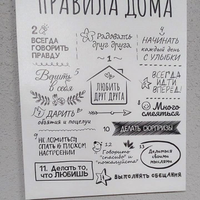 ПРАВИЛА ДОМА
2 ВСЕГДА
ГОВОРИТЬ
ПРАВДУ
Радовать
друг друга
НАЧИНАТЬ
каждый день
С УЛЫБКИ
1
ЛЮБИТЬ
ДРУГ ДРУГА
Верить в
себя
ВСЕГДА
ИДТИ
ВПЕРЕД!
ДАРИТЬ
объятия и поцелуи
Много
смеяться
10 ДЕЛАТЬ СЮРПРИЗЫ
НЕ ЛОЖИТЬСЯ
СПАТЬ В ПЛОХОМ
НАСТРОЕНИИ
12
Говорить
"спасибо" и
"пожалуйста"
13
Делиться
своими
11. Делать то,
что ЛЮБИШЬ
ВЫПОЛНЯТЬ ОБЕЩАНИЯ